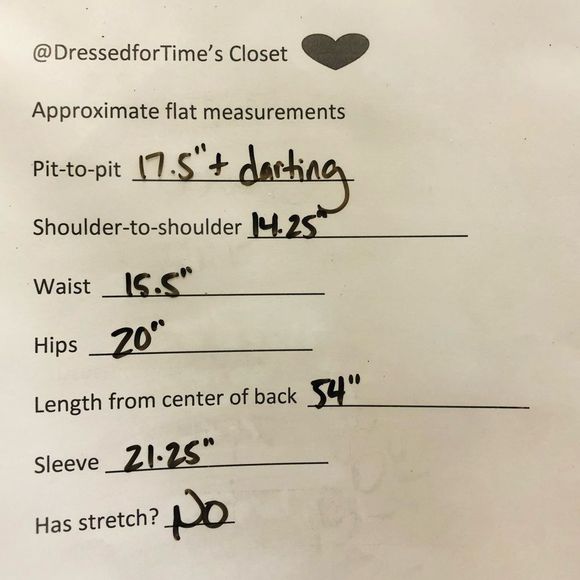 @DressedforTime's Closet
Approximate flat measurements
Pit-to-pit 17.5"+ darting
Shoulder-to-shoulder 14.25"
Waist 15.5"
Hips 20"
Length from center of back 54"
Sleeve 21.25"
Has stretch? No